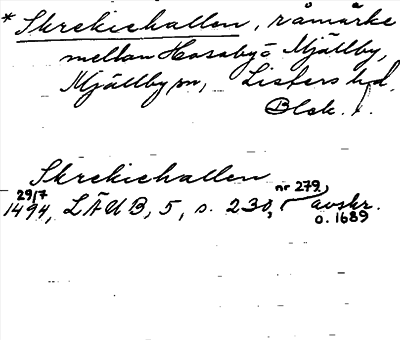 * Skrekiehallen, råmärke
mellan Hosaby o Mjällby,
Mjällby sn, Listers hd.
Blek.
Skrekiehallen
29/7 nr 279
1494, LÄUB, 5, s. 230, avskr.
o. 1689